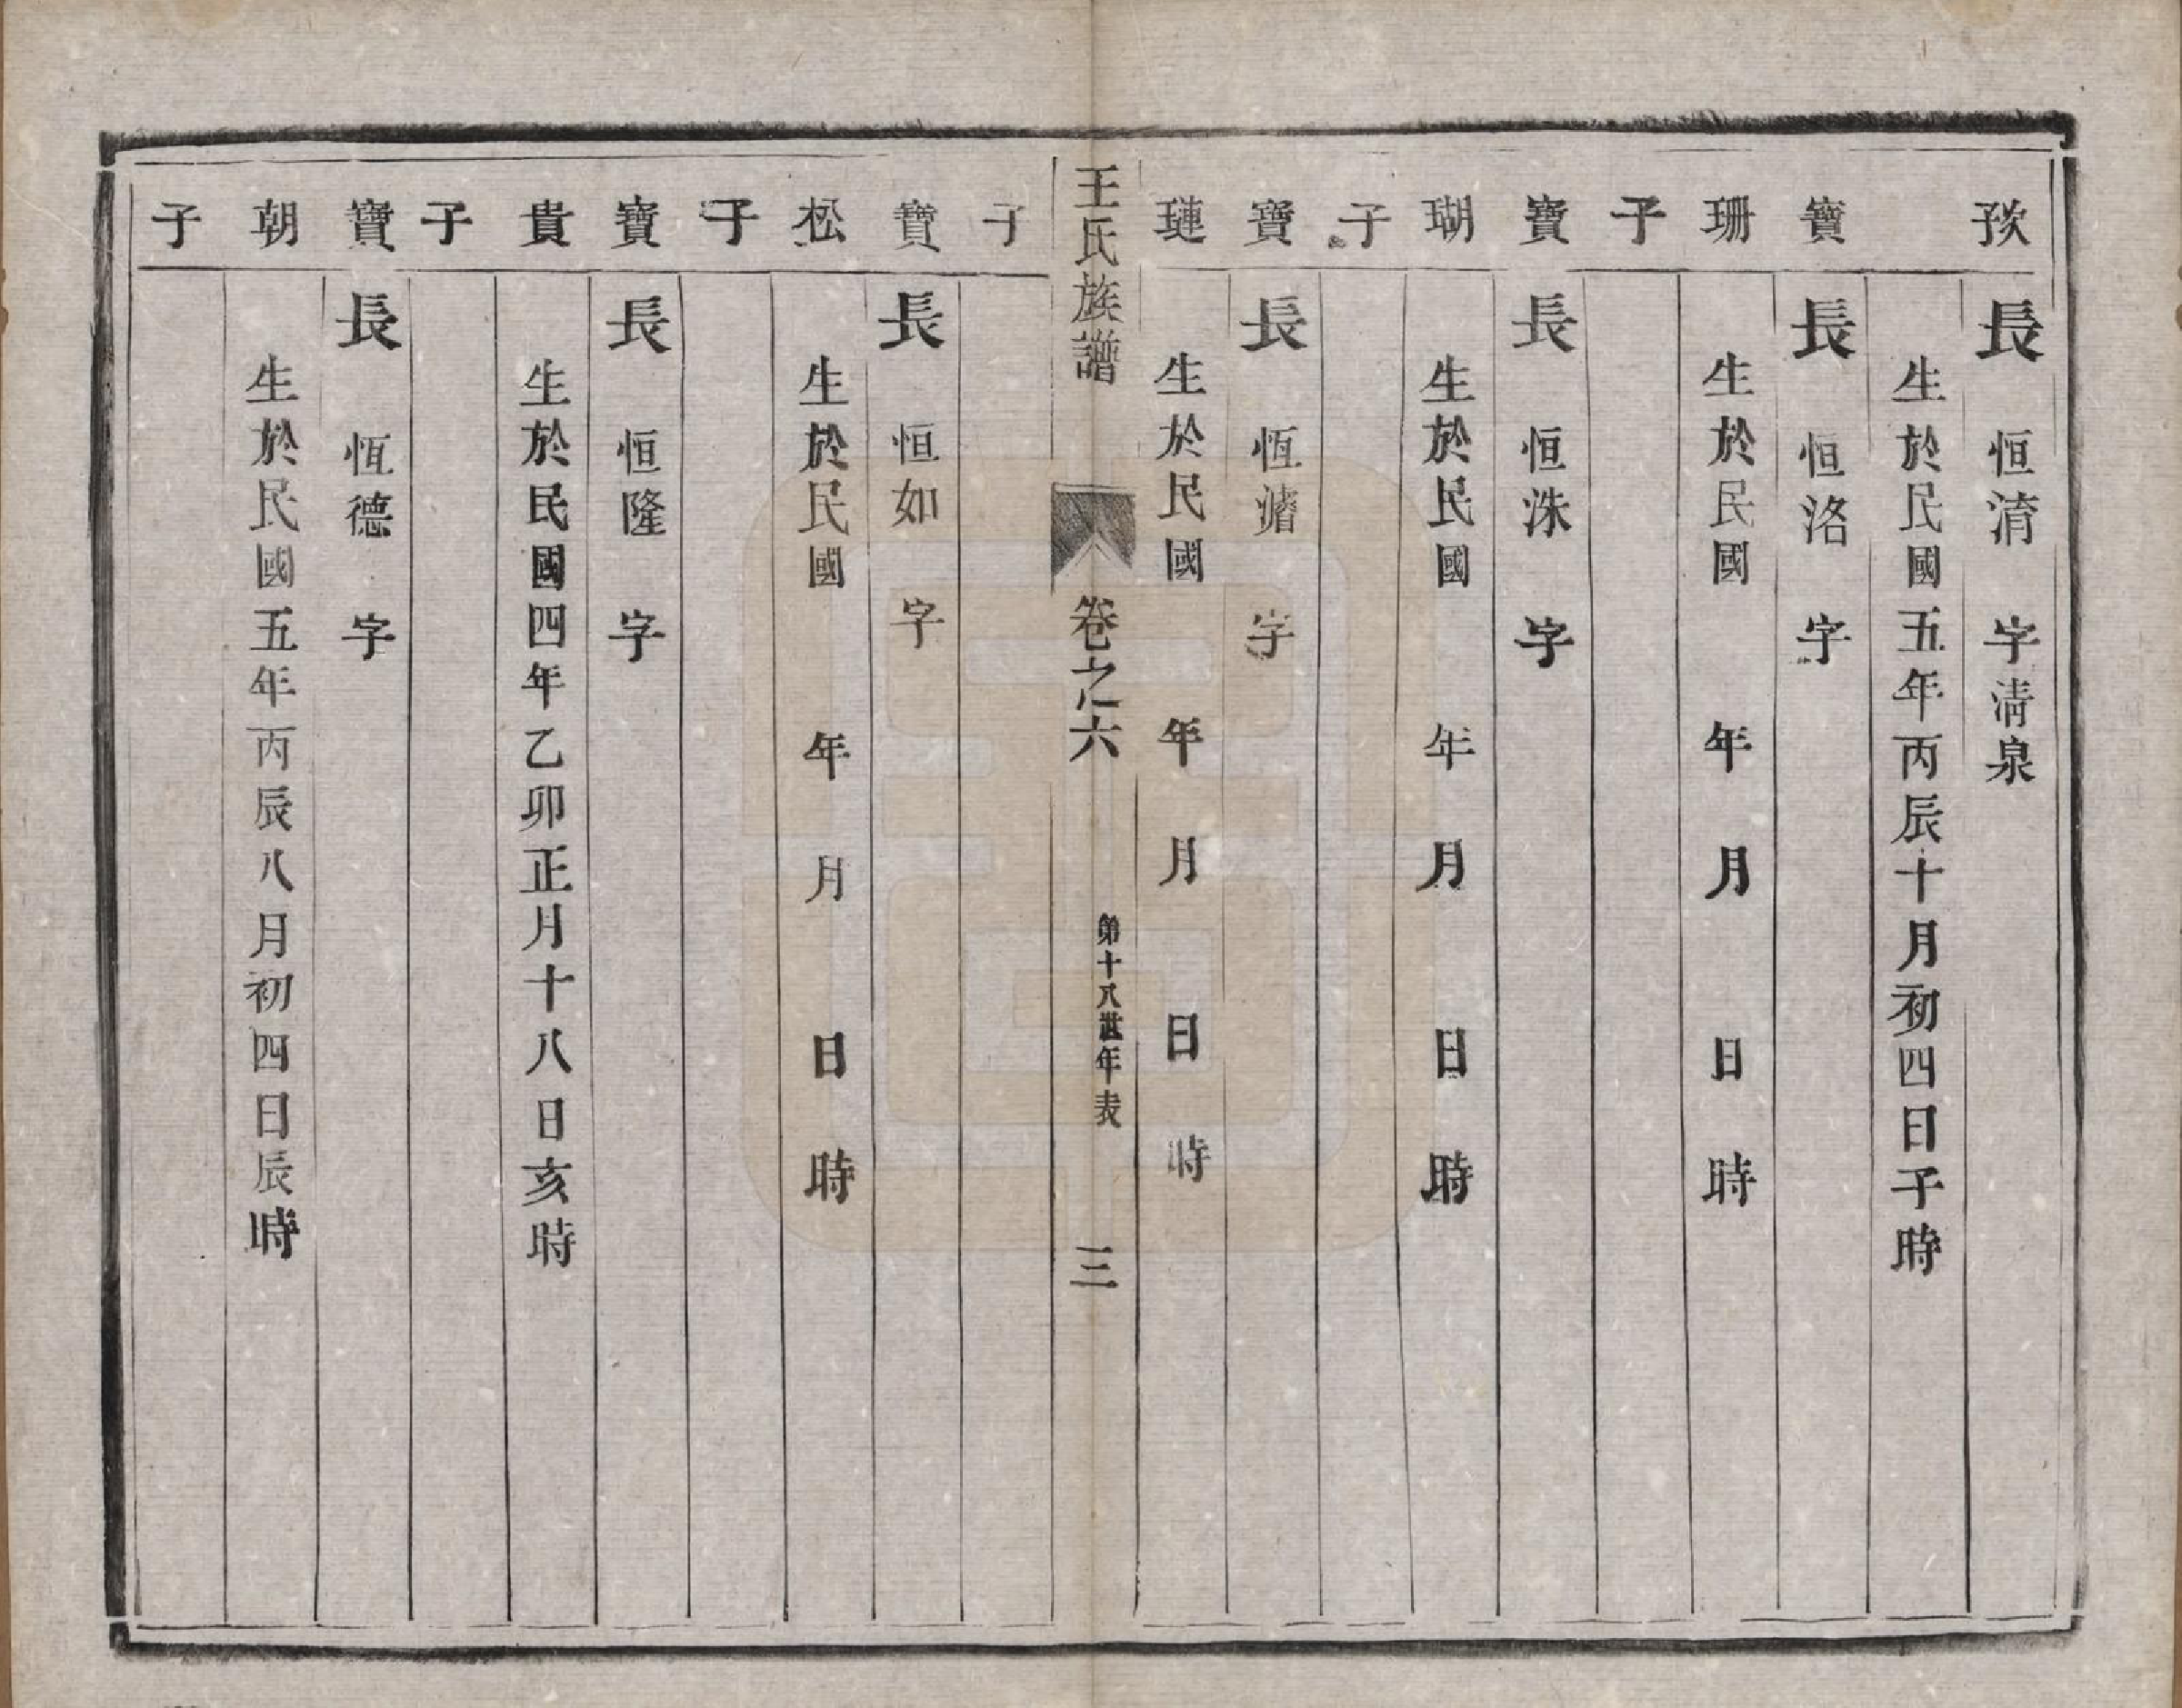 長　恒淯　字淸泉
生於民國五年丙辰十月初四日子時
寶　長　恒洛　字
珊　生於民國　年　月　日　時
子
寶　長　恒洙　字
瑚　生於民國　年　月　日　時
子
寶　長　恆　字
璉　生於民國　年　月　日　時
王氏族譜　卷之六　第十八世年表　三
子
寶　長　恒如　字
松　生於民國　年　月　日　時
子
寶　長　恒隆　字
貴　生於民國四年乙卯正月十八日亥時
子
寶　長　恆德　字
朝　生於民國五年丙辰八月初四日辰時
子